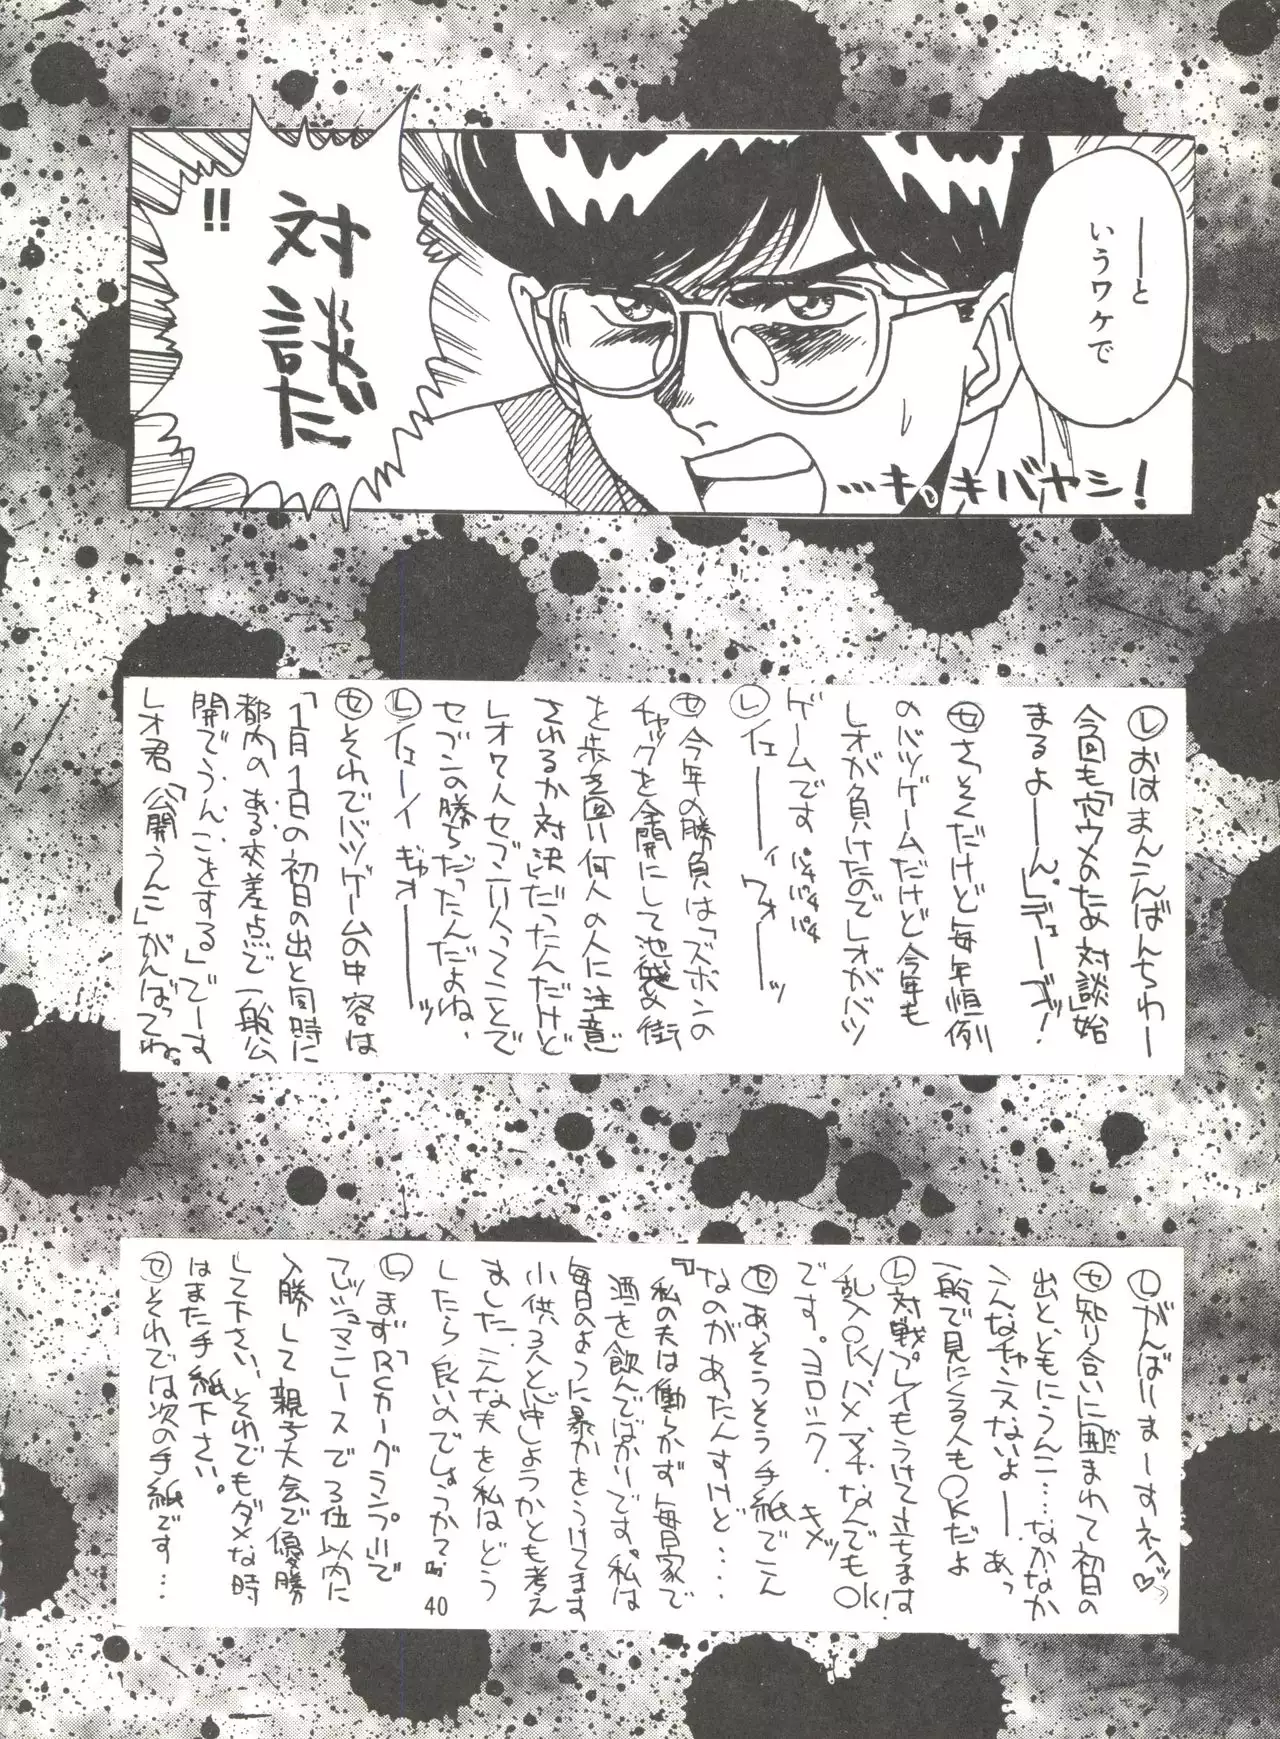 ――と
いうワケで
対談だ
!!
キ、キバヤシ!
…
Ⓛおはまんこんばんちわー
今回も「穴ウメのため対談」始
まるよ――ん。デューブッ!
㋝さっそくだけど毎年恒例
のバツゲームだけど今年も
レオが負けたのでレオがバツ
ゲームです パチパチパチ
Ⓛイェ――ィ ワォ――ッ
㋝今年の勝負は「ズボンの
チャックを全開にして池袋の街
を歩き回り何人の人に注意
されるか対決」だったんだけど
レオ7人セブン11人ってことで
セブンの勝ちだったんだよね、
Ⓛイェーイ ギャオ――ッ
㋝それでバツゲームの中容は
「1月1日の初日の出と同時に
都内のある交差点で一般公
開でうんこをする」でーす
レオ君、「公開うんこ」がんばってね。
Ⓛがんばりまーすネヘッ♡
㋝知り合いに囲まれて初日の
出とともにうんこ……なかなか
こんなチャンスないよ――あっ
一般で見にくる人もOKだよ
Ⓛ対戦プレイもうけて立ちます
乱入OK!バメ、マチ、なんでもOK!
です。ヨロシク、 キメッ
㋝あっそうそう手紙でこん
なのがあったんすけど……
『私の夫は働らかず毎日家で
酒を飲んでばかりです。私は
毎日のように暴力をうけてます
小供3人と心中しようかとも考え
ました、こんな夫を私はどう
したら良いのでしょうか?』
Ⓛまず「RCカーグランプリ」で
てジョマンレースで3位以内に
入勝して親子大会で優勝
して下さい、それでもダメな時
はまた手紙下さい。
㋝それでは次の手紙です…
40